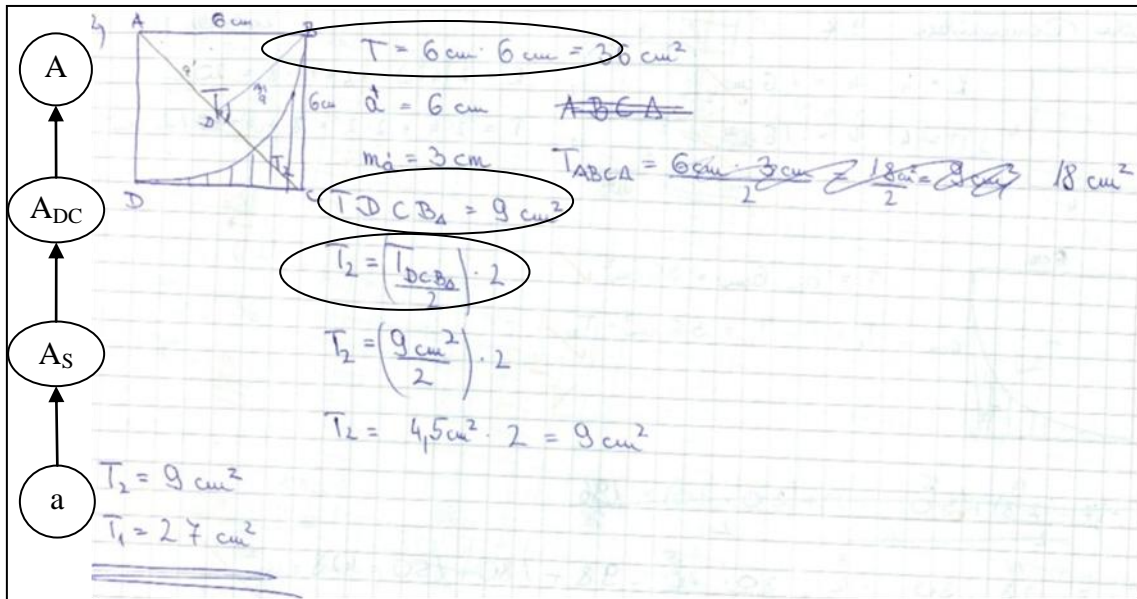 A
A_DC
A_S
a
A 6 cm B
T = 6 cm · 6 cm = 36 cm²
a' = 6 cm ABCΔ
6 cm
T₁
D'
T₂
D C
m_a' = 3 cm T_ABCΔ = 6cm · 3cm / 2 = 18 cm² / 2 = 9 cm² 18 cm²
T D C B_Δ = 9 cm²
T₂ = (T_DCBΔ / 2) · 2
T₂ = (9 cm² / 2) · 2
T₂ = 4,5 cm² · 2 = 9 cm²
T₂ = 9 cm²
T₁ = 27 cm²